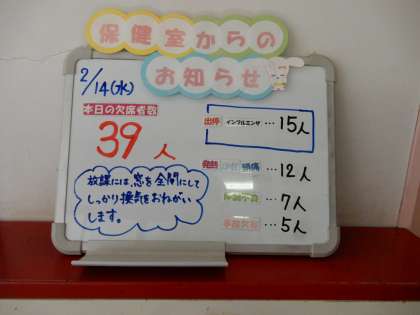 保健室からの
お知らせ
2/14(水)
本日の欠席者数
39人
放課には、窓を全開にして
しっかり換気をおねがい
します。
出停 インフルエンザ…15人
発熱 頭痛…12人
…7人
事故欠席…5人